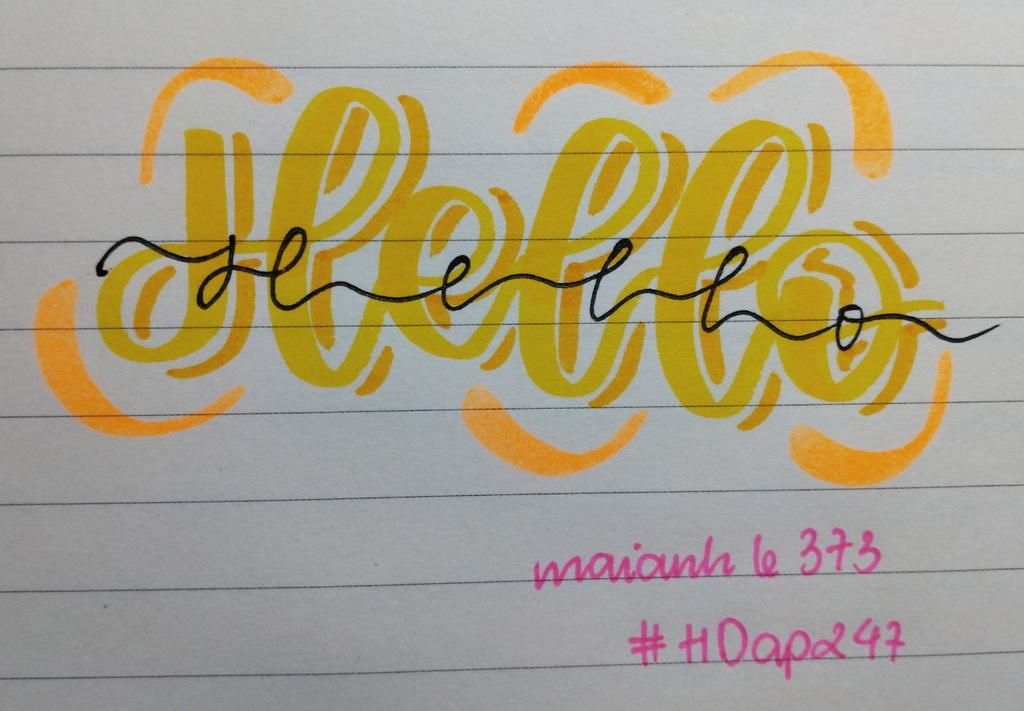 Hello
Hello
maianh le 373
#HDap247